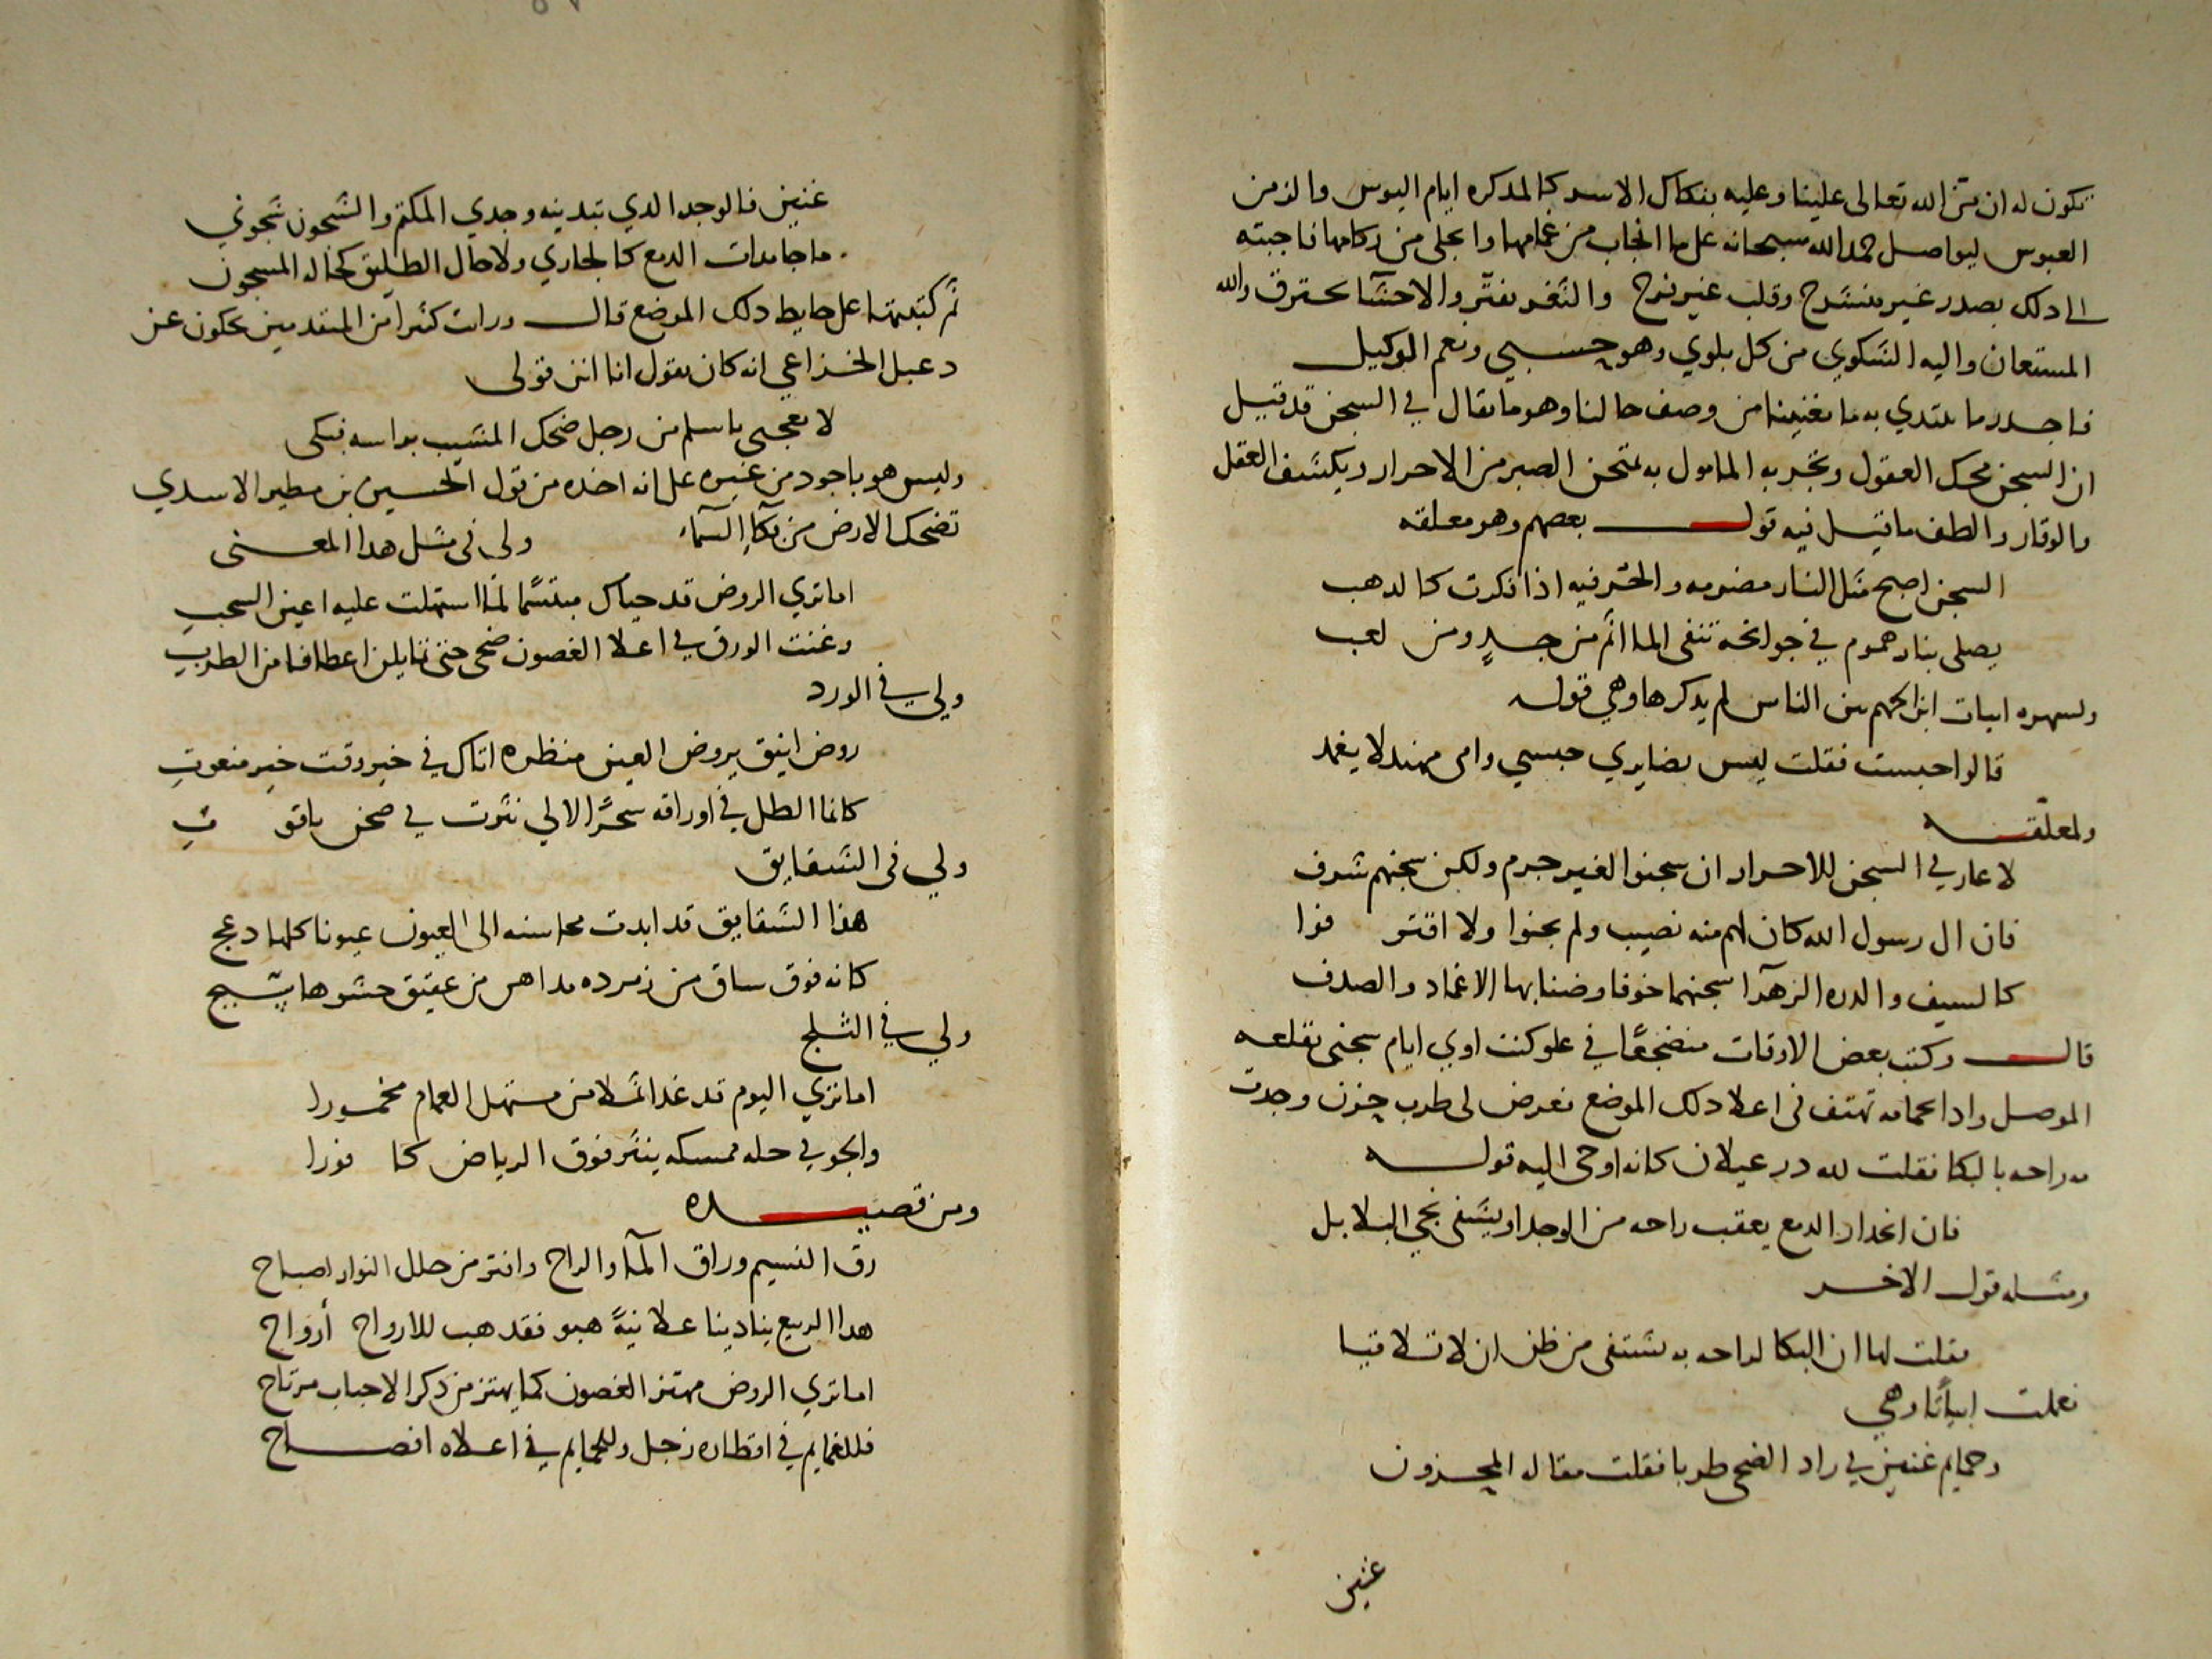 تكون له ان منّ الله تعالى علينا وعليه بفكاك الاسر كالمدكره ايام البوس والزمن
العبوس ليواصل حمد الله سبحانه على ما انجاب من غمامها وانجلى من ركامها فاجبته
الى دلك بصدر غير منشرح وقلب غير فرح والثغر يفتّر والاحشآ تحترق والله
المستعان واليه الشكوي من كل بلوي وهو حسبي ونعم الوكيل
فاجدر ما نبتدي به ما يغنينا من وصف حالنا وهو ما يقال في السجن قد قيل
ان السجن محك العقول وتجربه المامول به تمتحن الصبر من الاحرار ويكشف العقل
والوقار والطف ما قيل فيه قول بعضهم وهو معلقه
السجن اصبح مثل النار مضرمه والحر فيه اذا فكرت كالدهب
يصلى بنار هموم في جوانحه تنفى الماائم من جدٍ ومن لعب
ولشهره ابيات ابن الجهم بين الناس لم يدكرها وهي قوله
قالوا حبست فقلت ليس بضايري حبسي واى مهند لا يغمد
ولمعلّقه
لا عار في السجن للاحرار ان سجنوا لغير جرم ولكن سجنهم شرف
فان ال رسول الله كان لهم منه نصيب ولم يجنوا ولا اقتر فوا
كالسيف والدره الزهرآ سجنهما خوفا وضنا بها الاغماد والصدف
قال وكنت بعض الاوقات منضجعًا في علو كنت اوي ايام سجنى بقلعه
الموصل وادا حمامه تهتف في اعلا دلك الموضع فعرض لى طرب حزن وجدت
مه راحه بالبكا فقلت لله در غيلان كانه اوحى اليه قوله
فان انحدار الدمع يعقب راحه من الوجد او يشفى نجي البلابل
ومثله قول الاخر
فقلت لها ان البكا لراحه به يشتفى من ظن ان لا تلاقيا
فعملت ابياتًا وهي
وحمايم غنين في راد الضحى طربا فقلت مقاله المحزون
غنين
غنين فالوجد الدي تبدينه وجدي المكتم والشجون شجوني
ما جامدات الدمع كالجاري ولا حال الطليق كحاله المسجون
ثم كتبتها على حايط دلك الموضع قال ورايت كثيرا من المتقدمين يحكون عن
دعبل الخزاعي انه كان يقول انا ابن قولى
لا تعجبى يا سلم من رجل ضحك المشيب براسه فبكى
وليس هو باجود من غيره على انه اخده من قول الحسين بن مطير الاسدي
تضحك الارض من بكآءِ السمآء ولى فى مثل هدا المعنى
اما تري الروض قد حياك مبتسمًا لما استهلت عليه اعين السحبِ
وغنت الورق في اعلا الغصون ضحى حتى تمايلن اعطافا من الطربِ
ولي في الورد
روض انيق يروض العين منظره اتاك في خير وقت خير منعوتِ
كانما الطل في اوراقه سحرًا لالي نثرت في صحن ياقو تِ
ولي فى الشقايق
هذا الشقايق قد ابدت محاسنه الى العيون عيونا كلها دعج
كانه فوق ساق من زمرده مداهن من عقيق حشوها سبج
ولي في الثلج
اما تري اليوم قد غدا ثملا من مستهل الغمام مخمورا
والجو في حله ممسكه ينثر فوق الرياض كا فورا
ومن قصيده
رق النسيم وراق المآ والراح وافتر من حلل النوار اصباح
هدا الربيع ينادينا علانيةً هبو فقد هب للارواح أرواح
اما تري الروض مهتز الغصون كما يهتز من ذكر الاحباب مرتاح
فللغمايم في اقطاره زجل وللحمايم في اعلاه افصاح